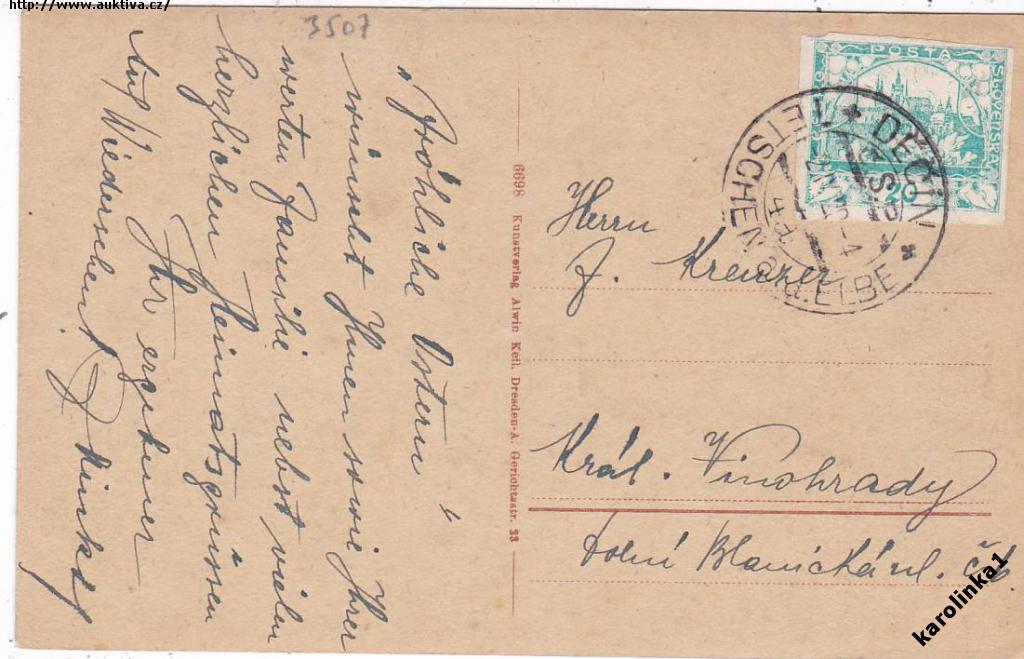 http://www.auktiva.cz/
3507
„Fröhliche Ostern"
wünscht Ihnen sowie Ihrer
werten Familie nebst vielen
herzlichen Heimatsgrüssen
Ihr ergebener
Auf Wiedersehen!
6698 Kunstverlag Alwin Keil, Dresden-A. Gerichtsstr. 23
POSTA
SLOVENSKÁ
20
DĚČÍN
TETSCHEN A.ELBE
Herrn
J. Kreuzer
Král. Vinohrady
Dolní Blanická ul. č
karolinka1